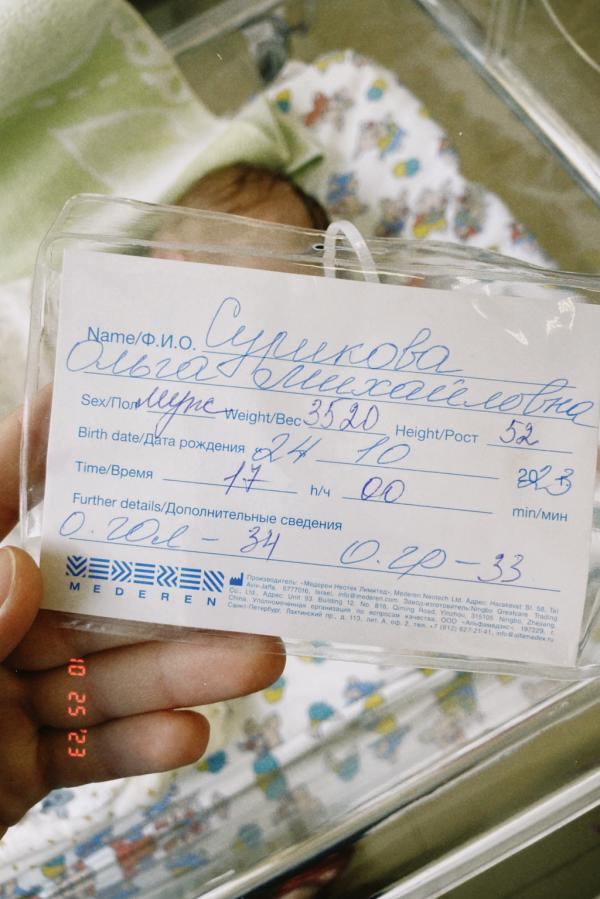 Name/Ф.И.О. Сурикова
Ольга Михайловна
Sex/Пол муж Weight/Вес 3520 Height/Рост 52
Birth date/Дата рождения 24 10 2023
Time/Время 17 h/ч 00 min/мин
Further details/Дополнительные сведения
О. гол - 34 О. гр - 33
MEDEREN
Производитель: «Медерен Неотех Лимитед», Mederen Neotech Ltd. Адрес: Harakevet St. 58, Tel
Aviv-Jaffa, 6777016, Israel, info@mederen.com. Завод-изготовитель: Ningbo Greatcare Trading
Co., Ltd., Адрес: Unit 93, Building 12, No. 818, Qiming Road, Yinzhou, 315105 Ningbo, Zhejiang,
China. Уполномоченная организация по вопросам качества: ООО «Альфамедикс», 197229, г.
Санкт-Петербург, Лахтинский пр., д. 113, лит. А, оф. 2, тел. +7 (812) 627-21-41, info@alfamedex.ru
10 25 '23